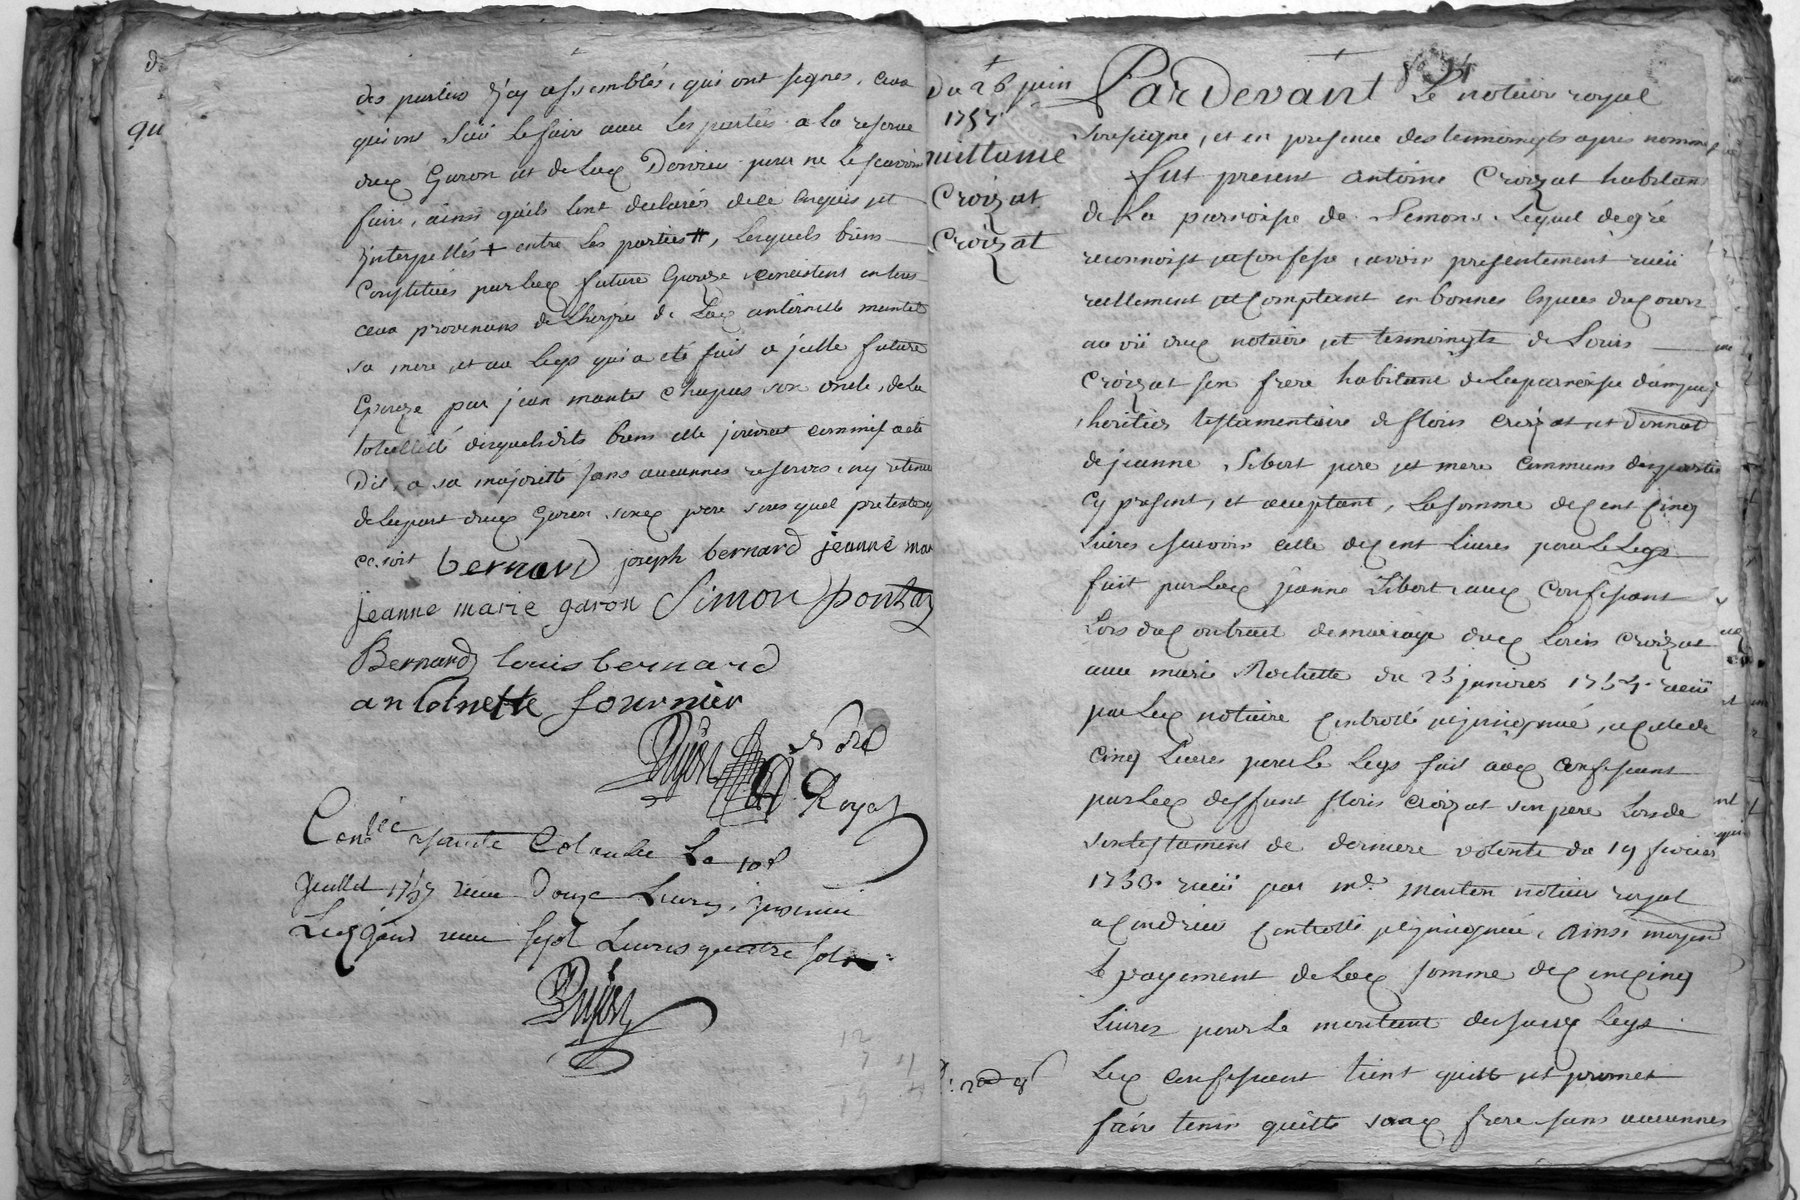 des parties y assemblés, qui ont signes, ceux
qui ont sceu le faire avec les parties a la reserve
dud Garon et de lad Donvieu pour ne le scavoir
faire, ainsi quils lont declarés de ce enquis et
interpellés + entre les parties #, lesquels biens
constitués par lad future Epouze consistent en tous
ceux provenans de de lad antoinette mantel
sa mere, et au legs qui a eté fait a jcelle future
Epouze par jean mantel chapus son oncle, de la
totallité desquelsdits biens elle jouirat comm'jl a eté
Dit, a sa majorité sans aucunnes reserves, ny retenue
de la part dud Garon sond pere sous quel pretexte que
ce soit bernard joseph bernard jeanne mar
jeanne marie garon Simon pontus
Bernard louis bernard
antoinette fournier
Dujon
Royal
Con.lé a sainte Colombe Le 10e
Juillet 1757 recu Douze Livres, jnsinué
Led jour recu sept Livres quatre sols
Dujon
Du 26 juin
1757
quittance
Croizat
Croizat
Pardevant Le notaire royal
soussigné, et en presence des temoingts apres nommés
fut present antoine Croizat habitant
de la parroisse de Semons, Lequel de gré
reconnoist et confesse, avoir presentement receu
reellement et comptant en bonnes especes du cours
au vû dud notaire, et tesmoingts de Louis
Croizat son frere habitant de la parroisse d'ampuis
heritier testamentaire de floris Croizat et Donnat
de jeanne Sibert pere et mere communs des parties
cy present, et acceptant, La somme de cent cinq
Livres scavoir celle de cent Livres pour le Legs
fait par lad jeanne Sibert, aud Confessant
Lors du Contract de mariage dud Louis Croizat
avec marie Rochette du 23 janvier receu
par led notaire Controllé, et jnsignué, et celle de
cinq Livres pour le Legs fait aud confessant
par led deffunt floris Croizat son pere Lors de
son testament de derniere volonté du 19 fevrier
receu par me. mouton notaire royal
a Condrieu Controllé et jnsignué, ainsi moyen
le payement de lad somme de cent cinq
Livres pour le montant desusd Legs
Led confessant tient quitte et promet
faire tenir quitte sond frere sans aucunnes